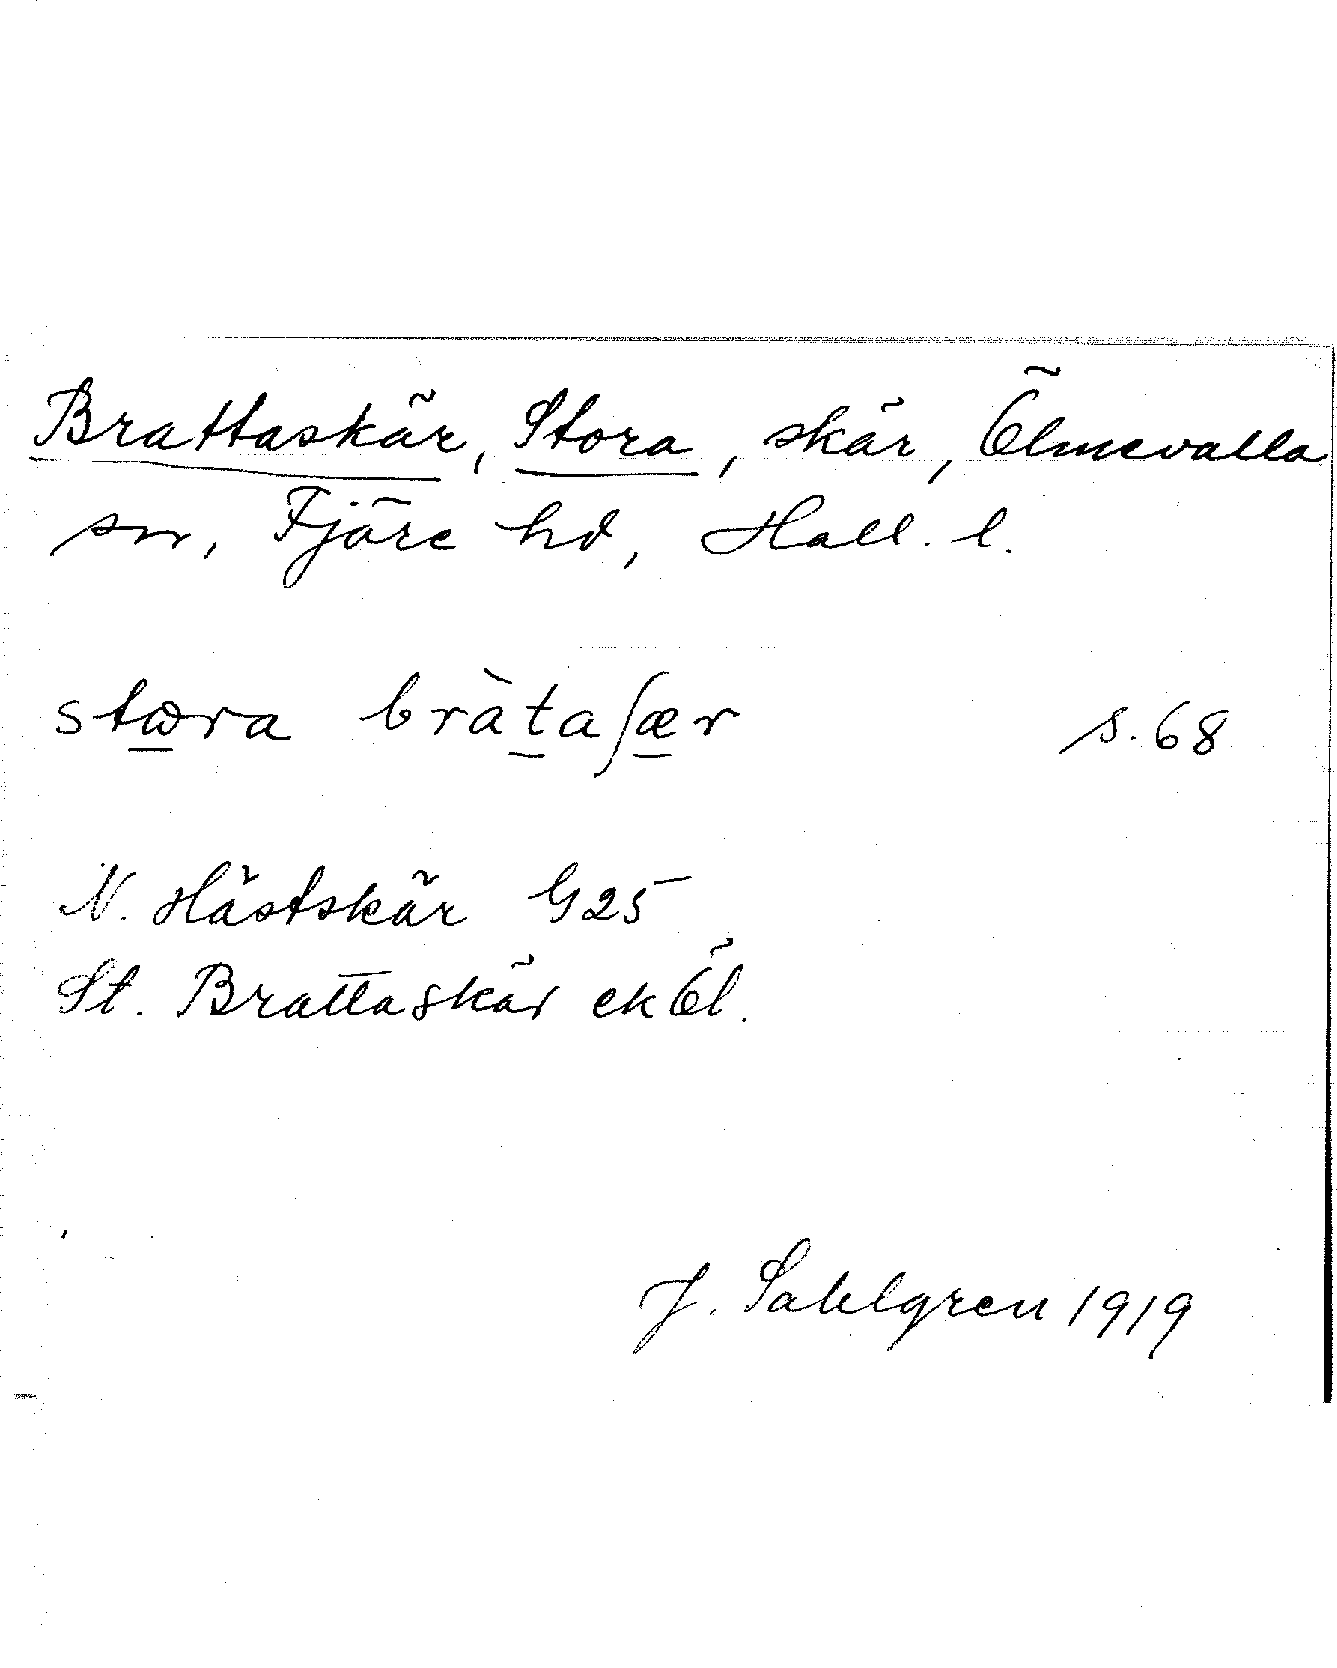 Brattaskär, Stora, skär, Ölmevalla
sn, Fjäre hd, Hall. l.
stωra bràtaʃær s. 68
N. Hästskär G25
St. Brattaskär ek Öl.
J. Sahlgren 1919